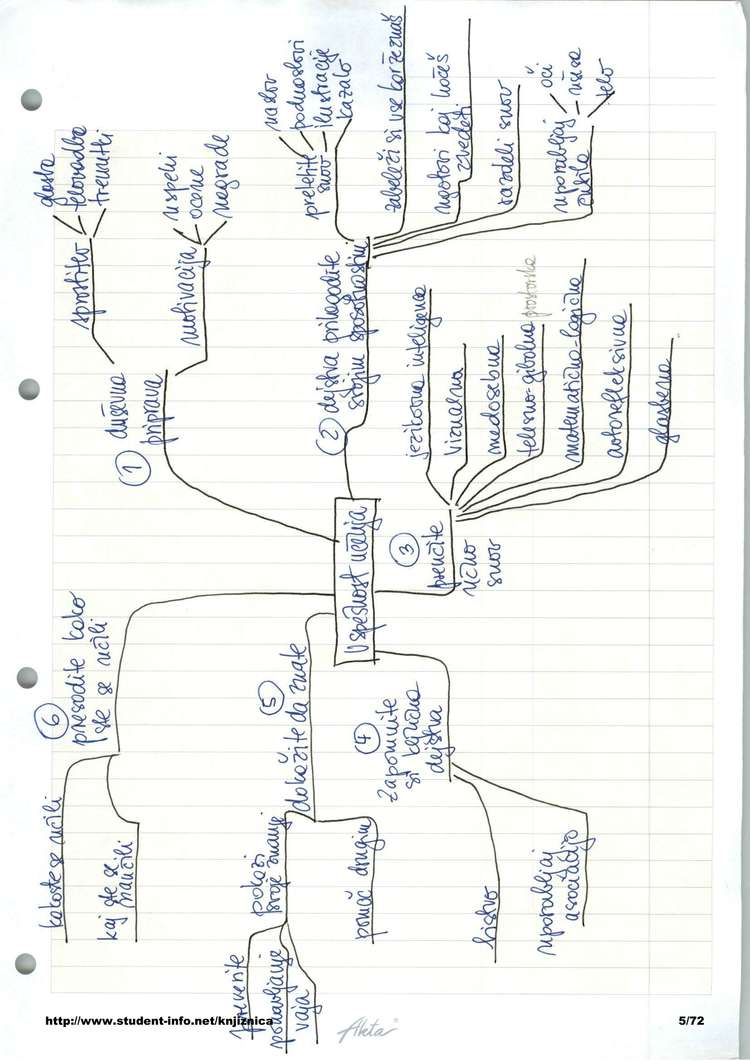 Uspešnost učenja
1
duševna
priprava
sprostitev
glasba
telovadba
trenutki
motivacija
uspehi
ocene
nagrade
2
dejstva prilagodite
svojim sposobnostim
preletite
snov
naslov
podnaslovi
ilustracije
kazalo
zabeleži si vse kar že znaš
ugotovi kaj hočeš
zvedeti
razdeli snov
uporabljaj
čutila
oči
ušesa
telo
3
preučite
učno
snov
jezikovna inteligenca
vizualna prostorska
medosebna
telesno-gibalna
matematično-logična
avtorefleksivna
glasbena
4
zapomnite
si ključna
dejstva
bistvo
uporabljaj
asociacijo
5
dokažite da znate
pokaži
svoje znanje
preverite
ponavljanje
vaja
pomoč drugim
6
presodite kako
ste se učili
kako ste se učili
kaj ste se
naučili
http://www.student-info.net/knjiznica
5/72